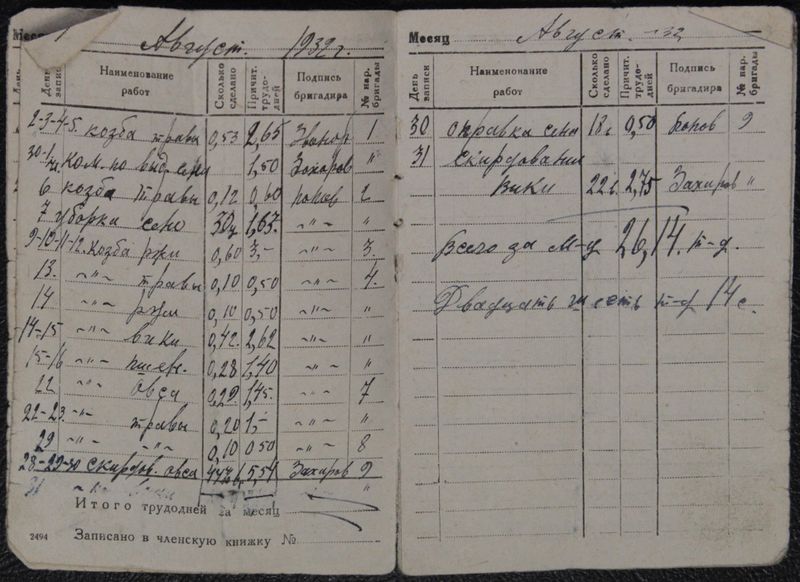 Август. 1932 г.
День записи
Наименование работ
Сколько сделано
Причит. трудодней
Подпись бригадира
№ нар. бригады
2-3-4-5. козба травы 0,53 2,65 1
1,50 Захаров "
6 козба травы 0,12 0,60 попов 2
7 уборка сено 30 1,67. -"- "
9-10-11-12. козба ржи 0,60 3,- -"- 3.
13. -"- травы 0,10 0,50 -"- 4.
14 -"- ржи 0,10 0,50 -"- "
14-15 -"- вики 0,42. 2,62 -"- "
15-16 -"- пшен. 0,28 1,40 -"- "
22 -"- овса 0,29. 1,45. -"- 7
22-23. -"- травы 0,20 1,- -"- "
29 -"- -"- 0,10 0 50 -"- 8
28-29-30 скирдов. овса 5,54 Захаров 9
31
Итого трудодней за месяц
2494 Записано в членскую книжку №
Месяц Август. 32
День записи
Наименование работ
Сколько сделано
Причит. трудодней
Подпись бригадира
№ нар. бригады
30 оправка сена 18 0,50 Попов 9
31 скирдования
Вики 22 2,75 Захаров "
Всего за М-ц 26,14. т-д.
Двадцать шесть т-д 14 с.